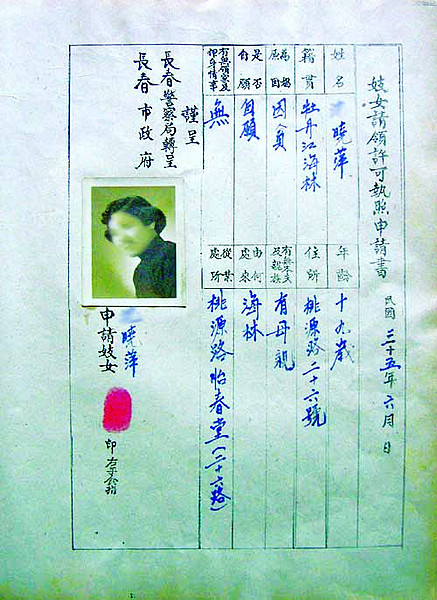 妓女請領許可執照申請書
民國三十五年六月 日
姓名 曉萍 年齡 十九歲
籍貫 牡丹江海林 住所 桃源路二十六號
為娼原因 因貧 有無本夫及親族 有母親
是否自願 自願 由何處來 海林
有無領家及身情事 無 從業處所 桃源路怡春堂(二十六路)
謹呈
長春警察局轉呈
長春市政府
申請妓女 曉萍 印 右手食指